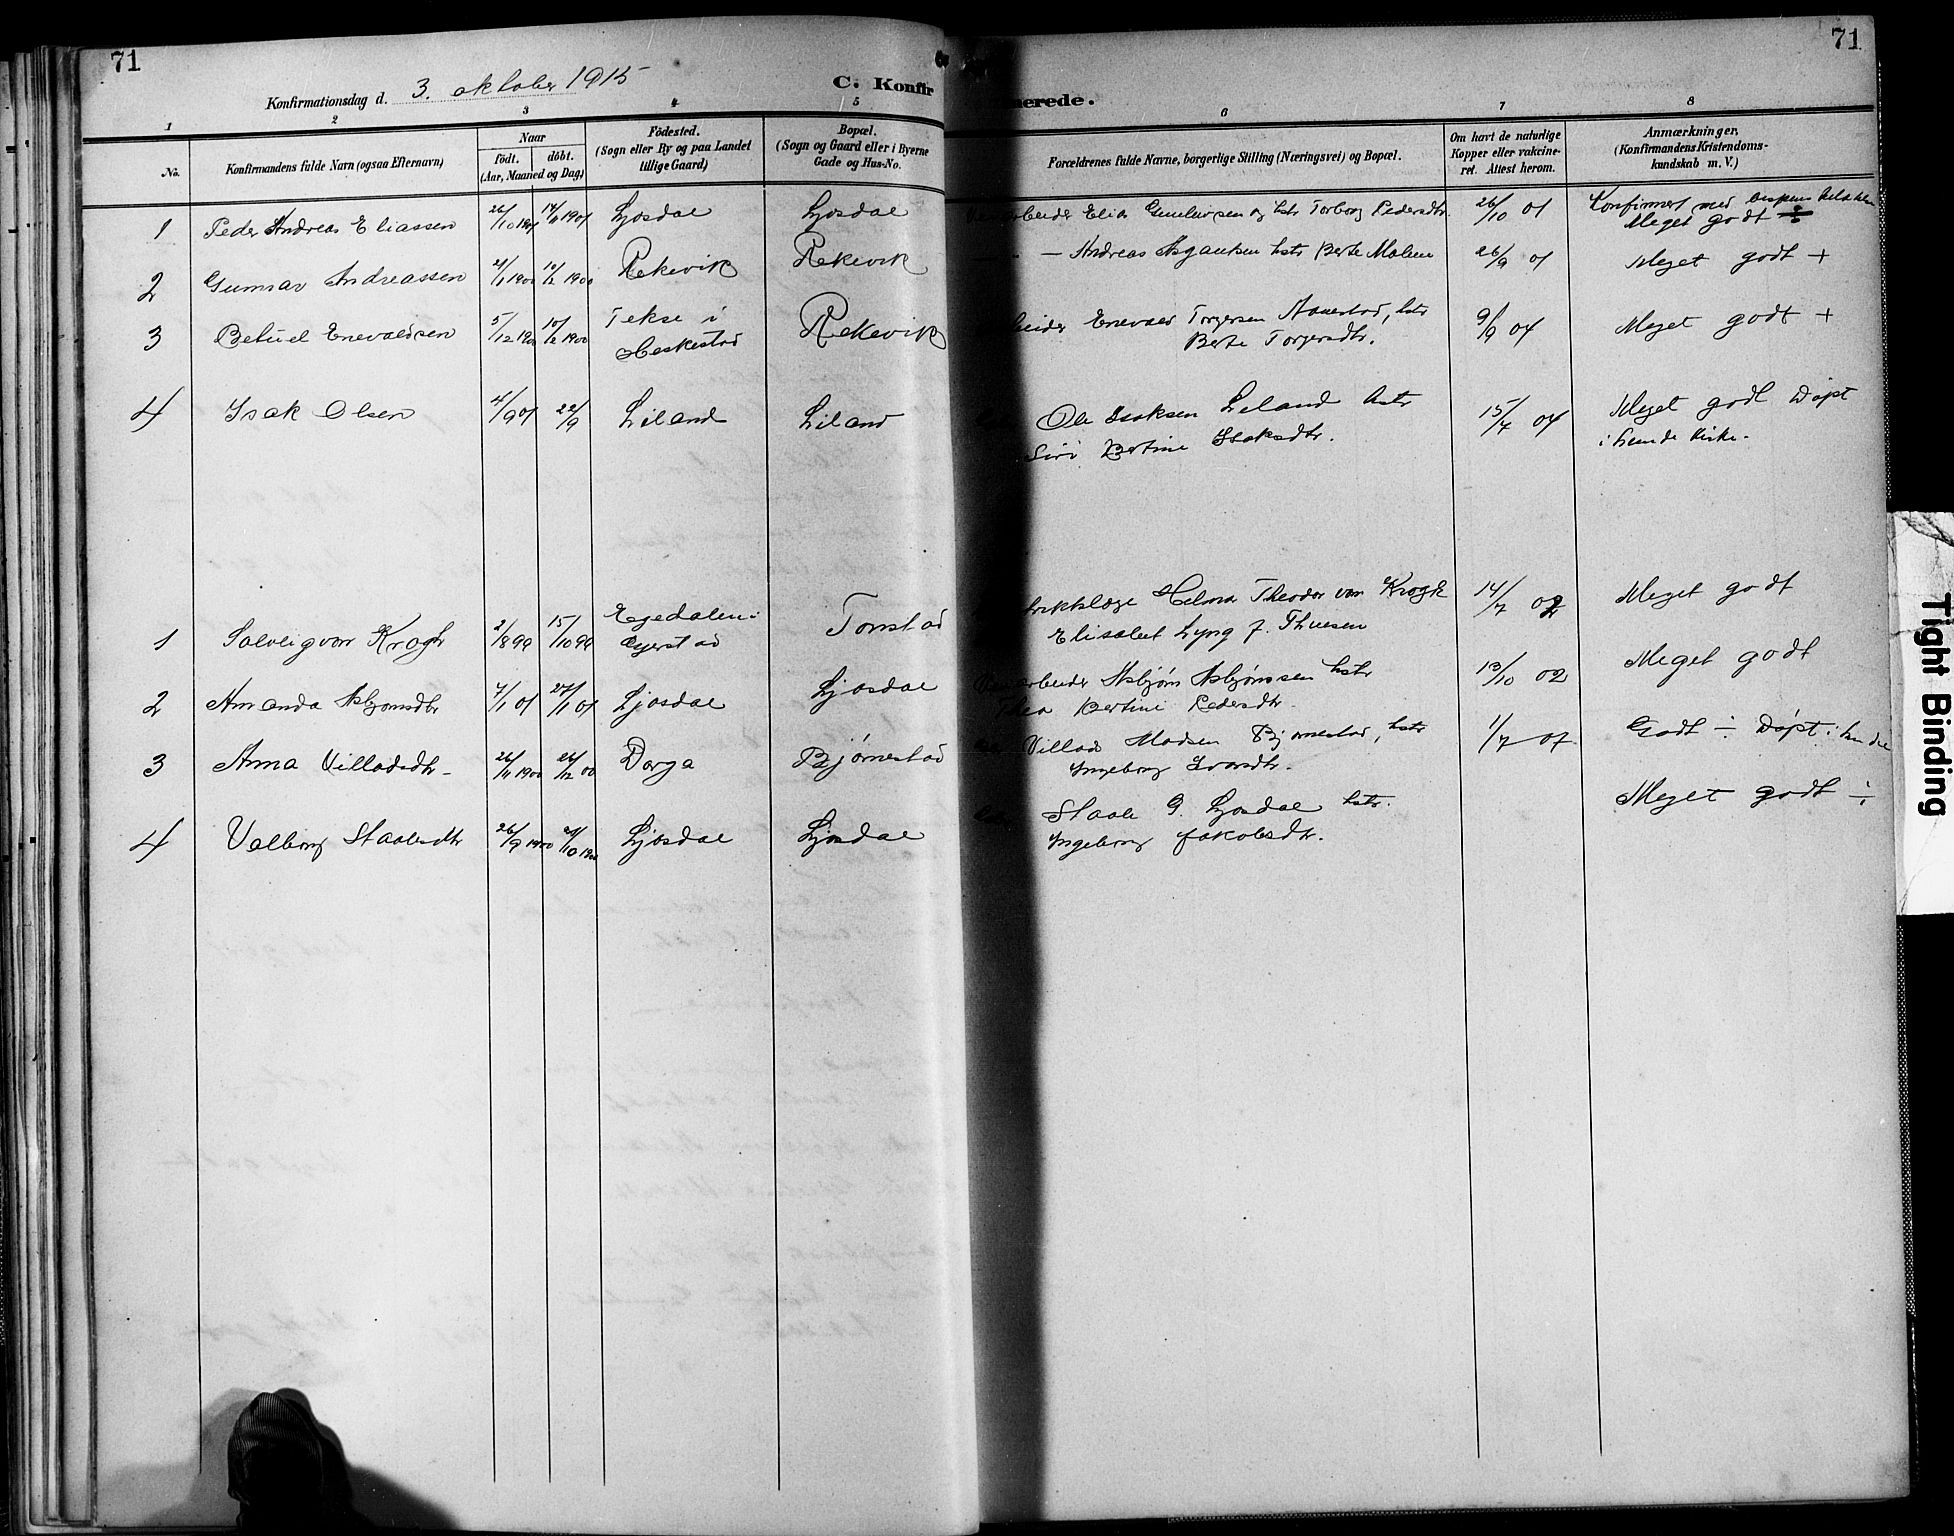 71
71
Konfirmationsdag d. 3. oktober 1915
C. Konfir
merede.
1 2 3 4 5 6 7 8
No.
Konfirmandens fulde Navn (ogsaa Efternavn)
Naar
født. døbt.
(Aar, Maaned og Dag)
Fødested.
(Sogn eller By og paa Landet
tillige Gaard)
Bopæl.
(Sogn og Gaard eller i Byerne
Gade og Hus-No.
Forældrenes fulde Navne, borgerlige Stilling (Næringsvei) og Bopæl.
Om havt de naturlige
Kopper eller vakcine-
ret. Attest herom.
Anmærkninger,
(Konfirmandens Kristendoms-
kundskab m. V.)
1 Peder Andreas Eliassen 26/10 1901 Ljosdal Ljosdal arbeider Elias hstr Torborg Pedersdtr. 26/10 01 Konfirmert med
Meget godt ÷
2 Gunnar Andreassen 10/2 1900 Rekevik Rekevik — Andreas Asgautsen hstr Berte Malene 26/9 01 Meget godt +
3 Betuel Enevaldsen 5/12 1900 10/12 1900 Tekse i
Heskestad Rekevik beider Enevald Torgersen hstr
Berte Torgersdtr. 9/9 04 Meget godt +
4 Isak Olsen 4/9 01 22/9 Liland Liland Ole Isaksen Liland hstr
Siri Bertine Isaksdtr. 15/7 04 Meget godt Døpt
i kirke.
1 Solveig von Krogh 2/8 99 15/10 99 Egedalen i
Gjerstad Tonstad triktslæge Helmer Theodor von Krogh
Elisabet Lyng f. Thuesen 14/7 02 Meget godt
2 Amanda Asbjørnsdtr 7/1 01 27/1 01 Ljosdal Ljosdal arbeider Asbjørn Asbjørnssen hstr
Thea Bertine Pedersdtr. 13/10 02 Meget godt
3 Anna Villadsdtr. 26/11 1900 26/12 00 Dorga Bjørnestad Villads Madsen Bjørnestad, hstr
Ingeborg Ivarsdtr. 1/7 07 Godt ÷ Døpt i
4 Valborg Staalesdtr 26/9 1900 Ljosdal Ljosdal Staale G. Ljosdal hstr.
Ingeborg Jakobsdtr. Meget godt ÷
Tight Binding